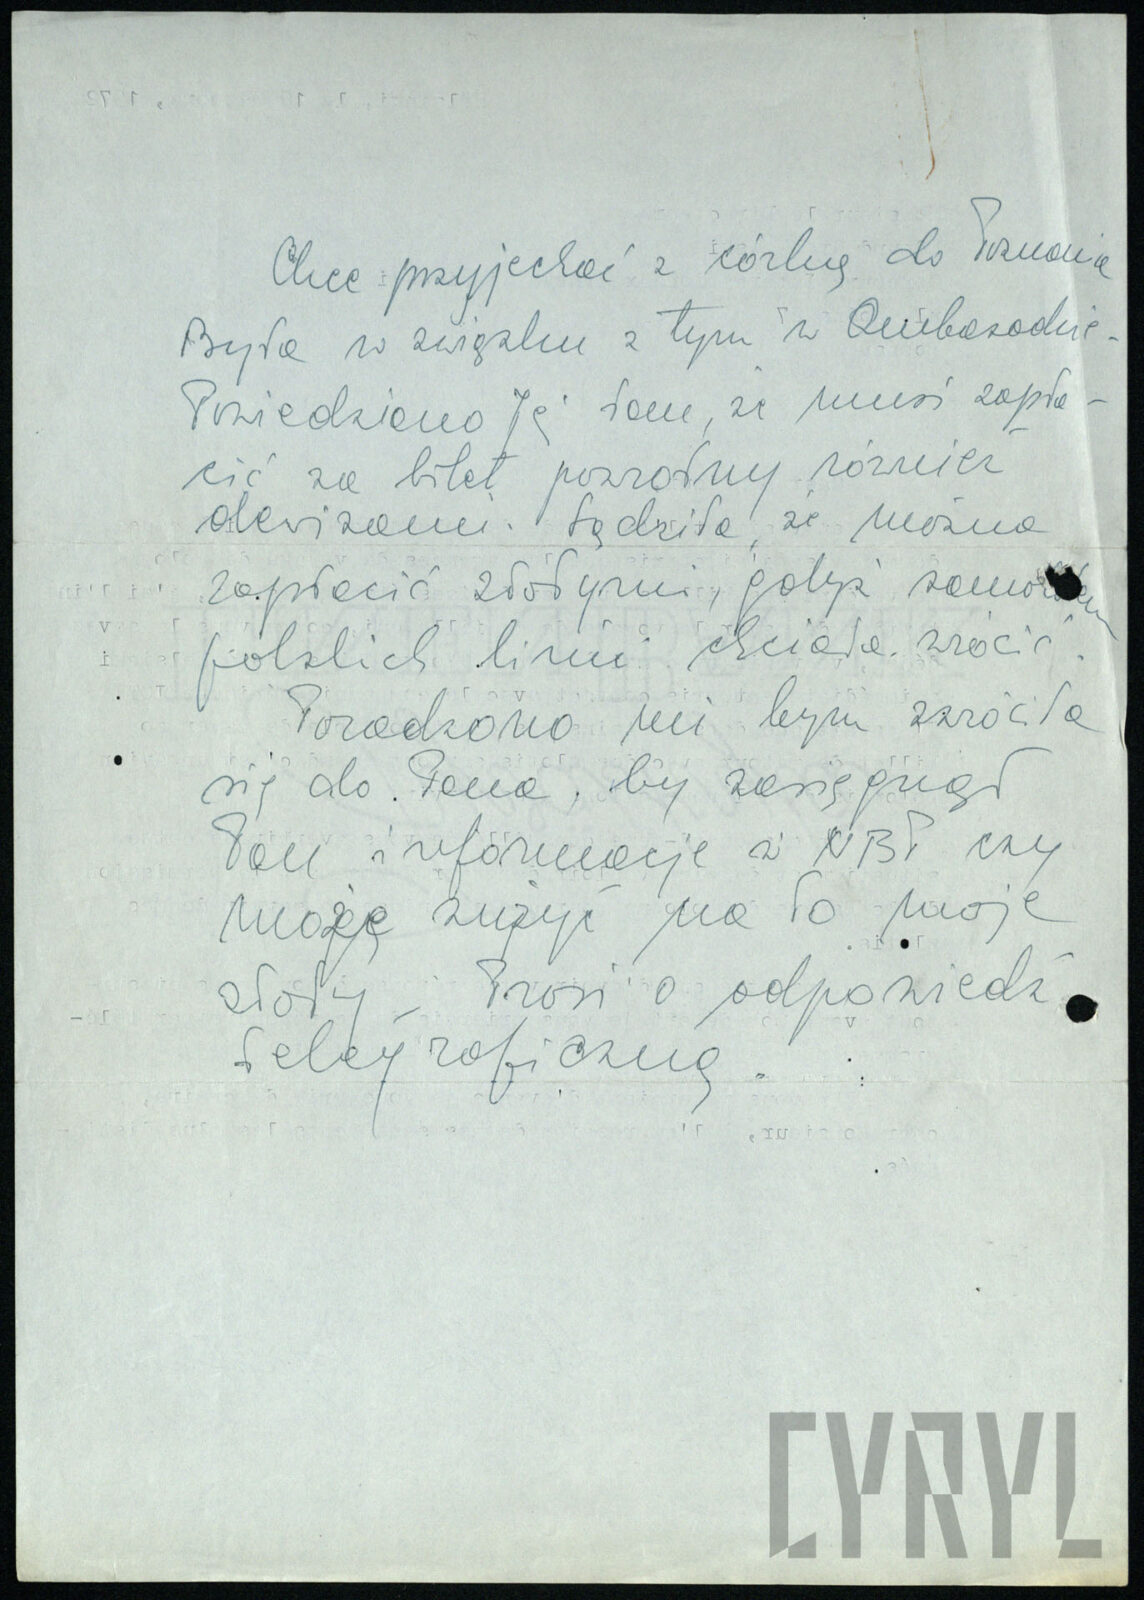 Chce przyjechać z córką do Poznania
Była w związku z tym w Ambasadzie -
Powiedziano Jej tam, że musi zapła-
cić za bilet powrotny również
dewizami. Sądziła, że można
zapłacić złotymi, gdyż samolotem
polskich linii chciała wrócić.
Poradzono mi bym zwróciła
się do Pana, by zasięgnął
Pan informacje z NBP czy
mogę zużyć na to moje
złoty - Prosi o odpowiedź
telegraficzną.
CYRYL